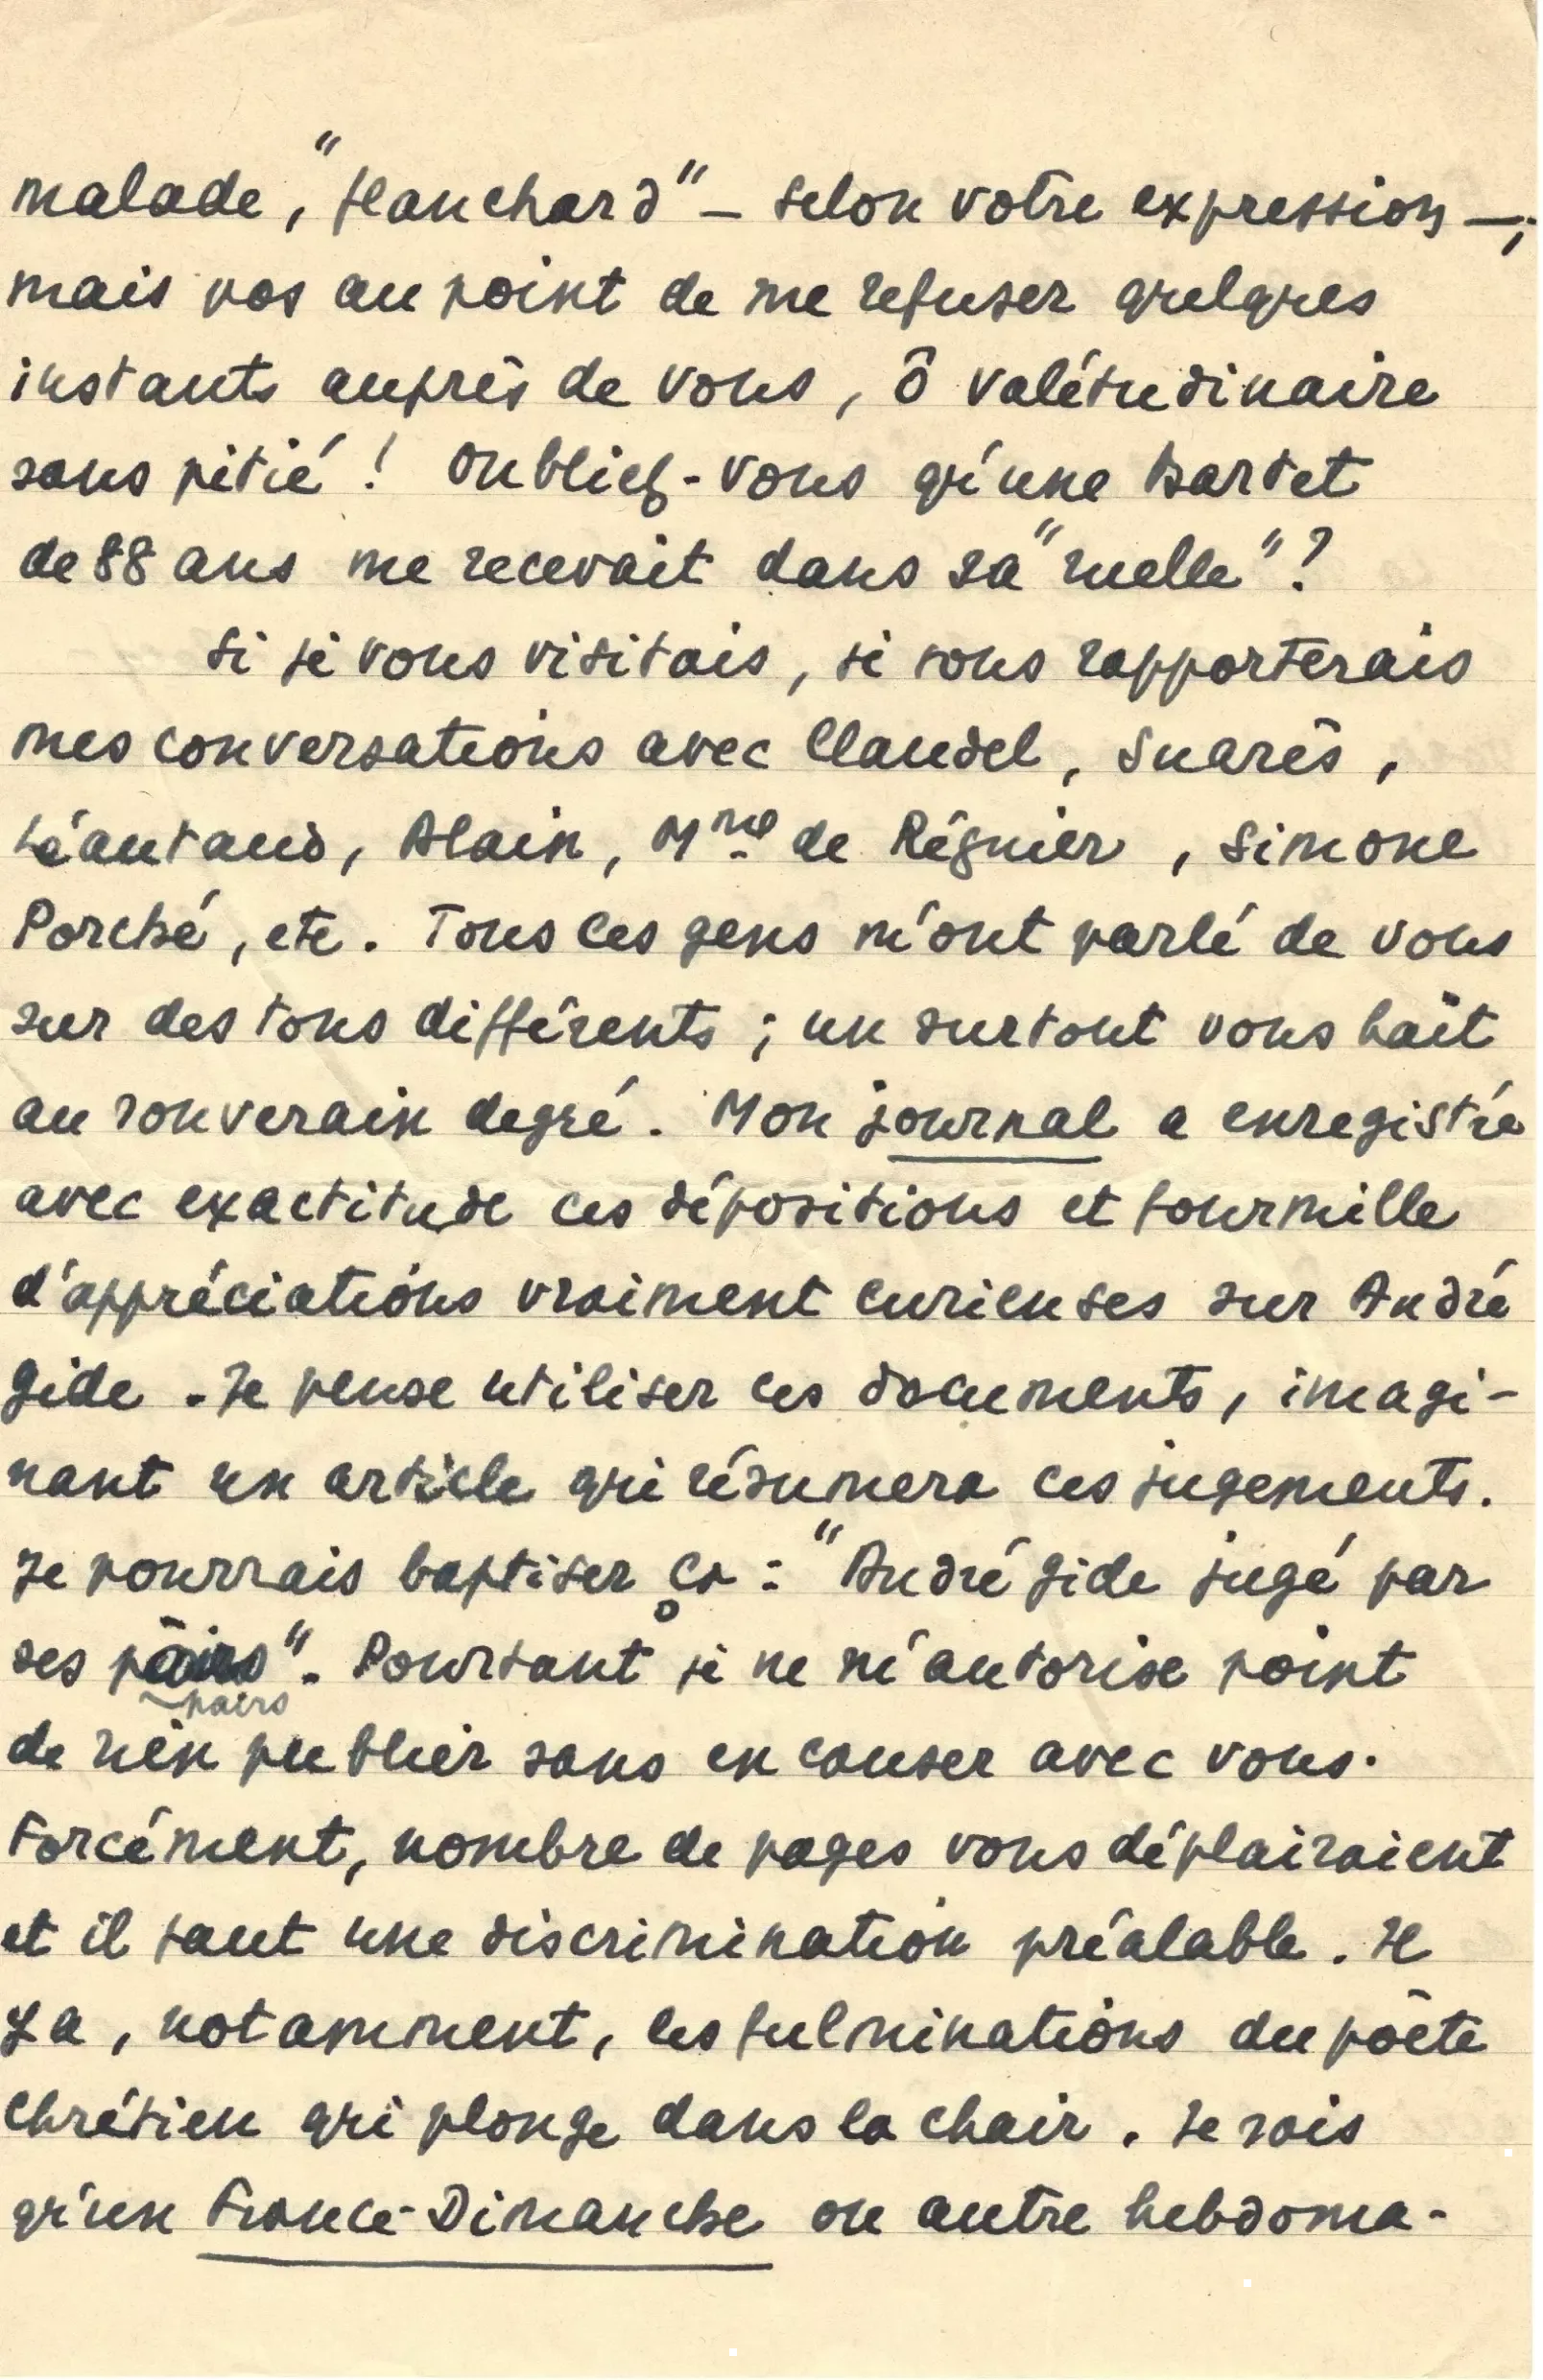 malade, "flanchard" – selon votre expression –;
mais pas au point de me refuser quelques
instants auprès de vous, ô valétudinaire
sans pitié ! Oubliez-vous qu'une Bartet
de 88 ans me recevait dans sa "ruelle" ?
Si je vous visitais, je vous rapporterais
mes conversations avec Claudel, Suarès,
Léautaud, Alain, Mme de Régnier, Simone
Porché, etc. Tous ces gens m'ont parlé de vous
sur des tons différents ; un surtout vous hait
au souverain degré. Mon journal a enregistré
avec exactitude ces dépositions et fourmille
d'appréciations vraiment curieuses sur André
Gide. Je pense utiliser ces documents, imagi-
nant un article qui résumera ces jugements.
Je pourrais baptiser ça : "André Gide jugé par
ses pairs". Pourtant je ne m'autorise point
pairs
de rien publier sans en causer avec vous.
Forcément, nombre de pages vous déplairaient
et il faut une discrimination préalable. Il
y a, notamment, les fulminations du poète
chrétien qui plonge dans la chair. Je sais
qu'un France-Dimanche ou autre hebdoma-